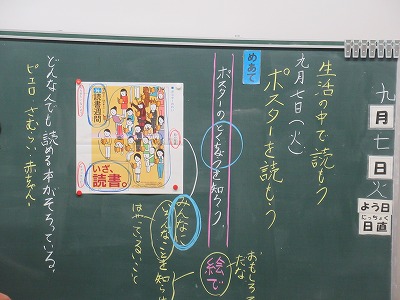 九月七日火
よう日
にっちょく
日直
生活の中で読もう
ポスターを読もう
九月七日(火)
めあて
ポスターのとくちょうを知ろう。
おもしろ
だな
絵で
みんなに
いろんなことを知らせ
読書週間
いざ、
読書。
どんな人でも読める本がそろっている。
ピエロ さむらい 赤ちゃん